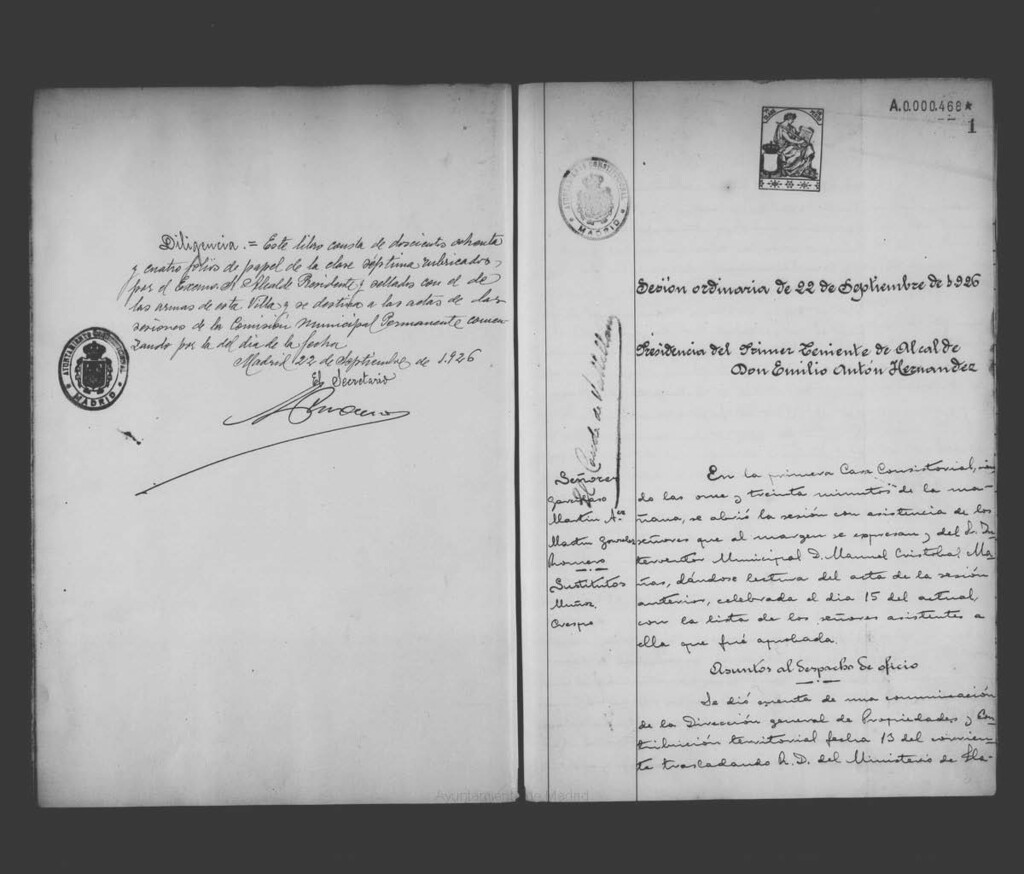 Diligencia.= Este libro consta de doscientos ochenta
y cuatro folios de papel de la clase séptima rubricados,
por el Excmo. Sr. Alcalde Presidente y sellados con el de
las armas de esta Villa, y se destina a las actas de las
sesiones de la Comisión Municipal Permanente comen-
zando por la del dia de la fecha
Madrid 22 de Septiembre de 1926
El Secretario
AYUNTAMIENTO CONSTITUCIONAL
MADRID
A.0.000.468*
1
AYUNTAMIENTO CONSTITUCIONAL
MADRID
Sesión ordinaria de 22 de Septiembre de 1926
Presidencia del Primer Teniente de Alcalde
Don Emilio Antón Hernandez
El Conde de Vallellano
Señores
Garcilaso
Martin Az.
Martin Gonzalez
Romero
Sustitutos
Muñoz
Crespo
En la primera Casa Consistorial, sien-
do las once y treinta minutos de la ma-
ñana, se abrió la sesión con asistencia de los
señores que al margen se expresan y del Sr. In-
terventor Municipal D. Manuel Cristobal Ma-
ñas, dándose lectura del acta de la sesión
anterior, celebrada el dia 15 del actual
con la lista de los señores asistentes a
ella que fué aprobada.
Asuntos al despacho de oficio
Se dió cuenta de una comunicación
de la Dirección general de Propiedades y Con-
tribución territorial fecha 13 del corrien-
te trasladando R.D. del Ministerio de Ha-
Ayuntamiento de Madrid